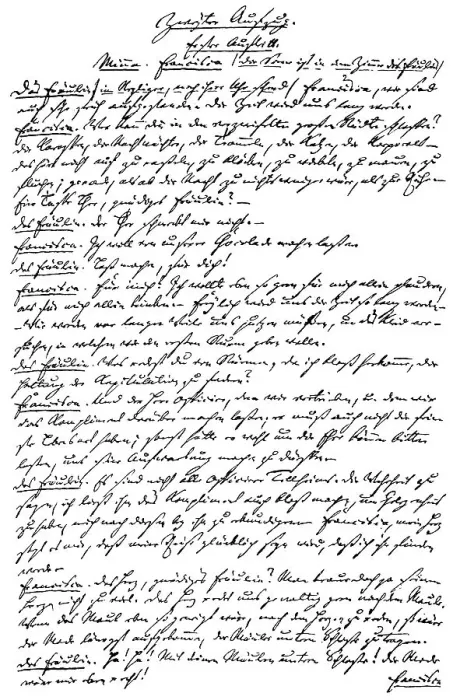 Zweyter Aufzug.
Erster Auftritt.
Minna. Francisca. (die Scene ist in dem Zimmer des Fräuleins)
Das Fräulein (im Negligee, nach ihrer Uhr sehend) Francisca, wir sind
auch sehr früh aufgestanden. Die Zeit wird uns lang werden.
Francisca. Wer kann denn in den verzweifelten großen Städten schlafen?
die Karossen, die Nachtwächter, die Trommeln, die Katzen, die Korporals -
das hört nicht auf zu rasseln, zu schreyen, zu wirbeln, zu mauen, zu
fluchen; gerade, als ob die Nacht zu nichts weniger wäre, als zur Ruhe -
Eine Tasse Thee, gnädiges Fräulein? -
das Fräulein. der Thee schmeckt mir nicht. -
Francisca. Ich will von unserer Chocolade machen lassen
das Fräulein. Laß machen, für dich!
Francisca. Für mich? Ich wollte eben so gern für mich allein plaudern,
als für mich allein trinken. - Freylich wird uns die Zeit so lang werden -
Wir werden vor langer Weile uns putzen müssen, u. das Kleid ver-
suchen, in welchem wir den ersten Sturm geben wollen.
das Fräulein. Was redest du von Stürmen, da ich bloß herkomme, die
Haltung der Kapitulation zu fodern?
Francisca. Und der Herr Officier, den wir vertrieben, u. dem wir
das Kompliment darüber machen lassen, er muß auch nicht die fein-
ste Lebensart haben; sonst hätte er wohl um die Ehre können bitten
lassen, uns seine Aufwartung machen zu dürfen -
das Fräulein. Es sind nicht alle Officiere Tellheims. die Wahrheit zu
sagen, ich ließ ihm das Kompliment auch bloß machen, um Gelegenheit
zu haben, mich nach diesem bey ihm zu erkundigen. Francisca, mein Herz
sagt es mir, daß meine Reise glücklich seyn wird, daß ich ihn finden
werde -
Francisca. das Herz, gnädiges Fräulein? Man traue doch ja seinem
Herzen nicht zu viel. das Herz redet uns gewaltig gern nach dem Maule.
Wenn das Maul eben so geneigt wäre, nach dem Herzen zu reden, so wäre
die Mode längst aufgekommen, die Mäuler unterm Schlosse zu tragen.
das Fräulein. Ha! ha! Mit deinen Mäulern unterm Schlosse! die Mode
wäre mir eben recht!
Francisca